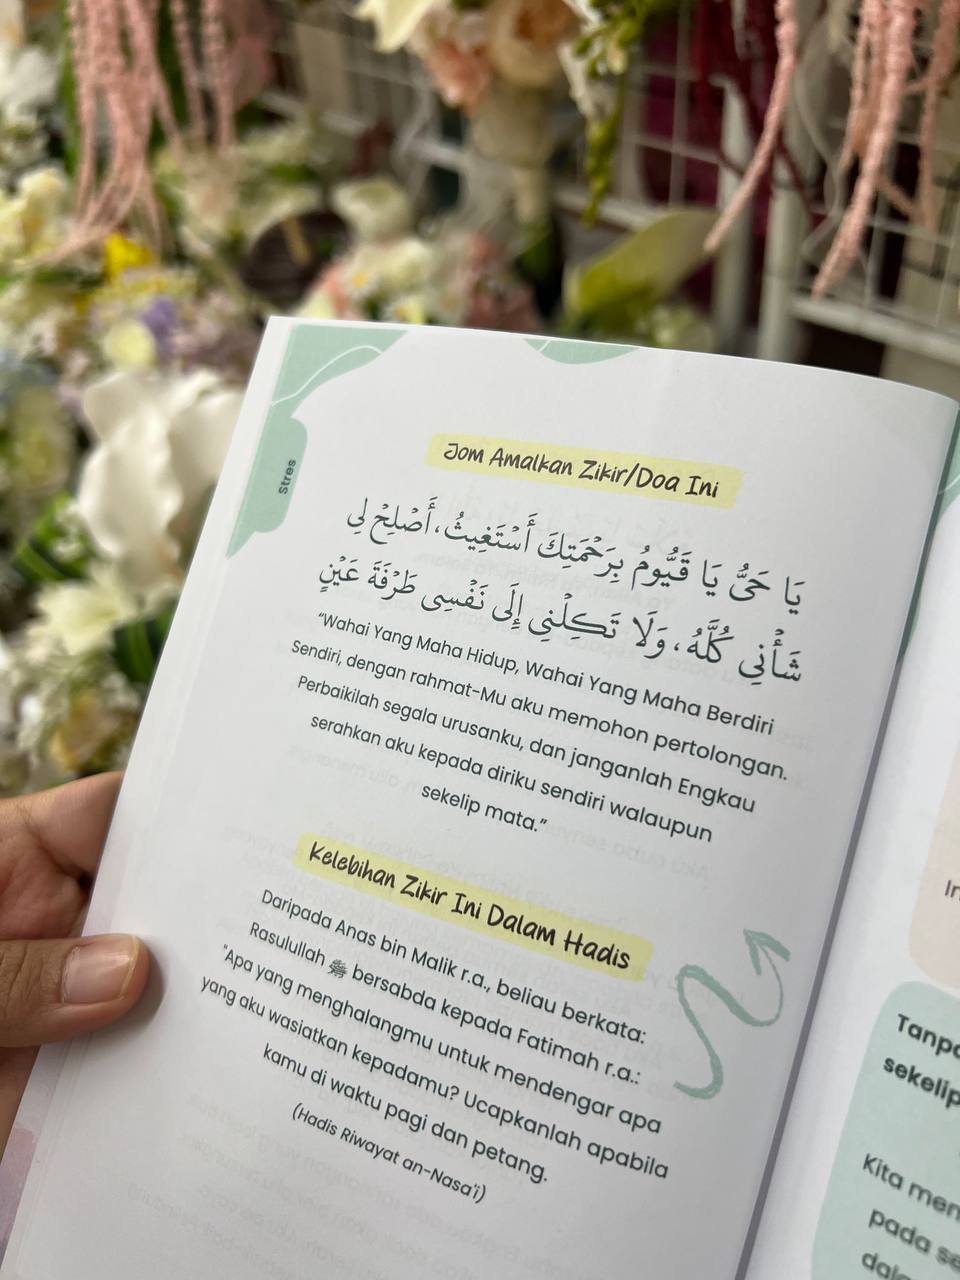 Stres
Jom Amalkan Zikir/Doa Ini
يَا حَيُّ يَا قَيُّومُ بِرَحْمَتِكَ أَسْتَغِيثُ، أَصْلِحْ لِي
شَأْنِي كُلَّهُ، وَلَا تَكِلْنِي إِلَى نَفْسِي طَرْفَةَ عَيْنٍ
"Wahai Yang Maha Hidup, Wahai Yang Maha Berdiri
Sendiri, dengan rahmat-Mu aku memohon pertolongan.
Perbaikilah segala urusanku, dan janganlah Engkau
serahkan aku kepada diriku sendiri walaupun
sekelip mata."
Kelebihan Zikir Ini Dalam Hadis
Daripada Anas bin Malik r.a., beliau berkata:
Rasulullah ﷺ bersabda kepada Fatimah r.a.:
"Apa yang menghalangmu untuk mendengar apa
yang aku wasiatkan kepadamu? Ucapkanlah apabila
kamu di waktu pagi dan petang.
(Hadis Riwayat an-Nasa'i)
Kita
pada